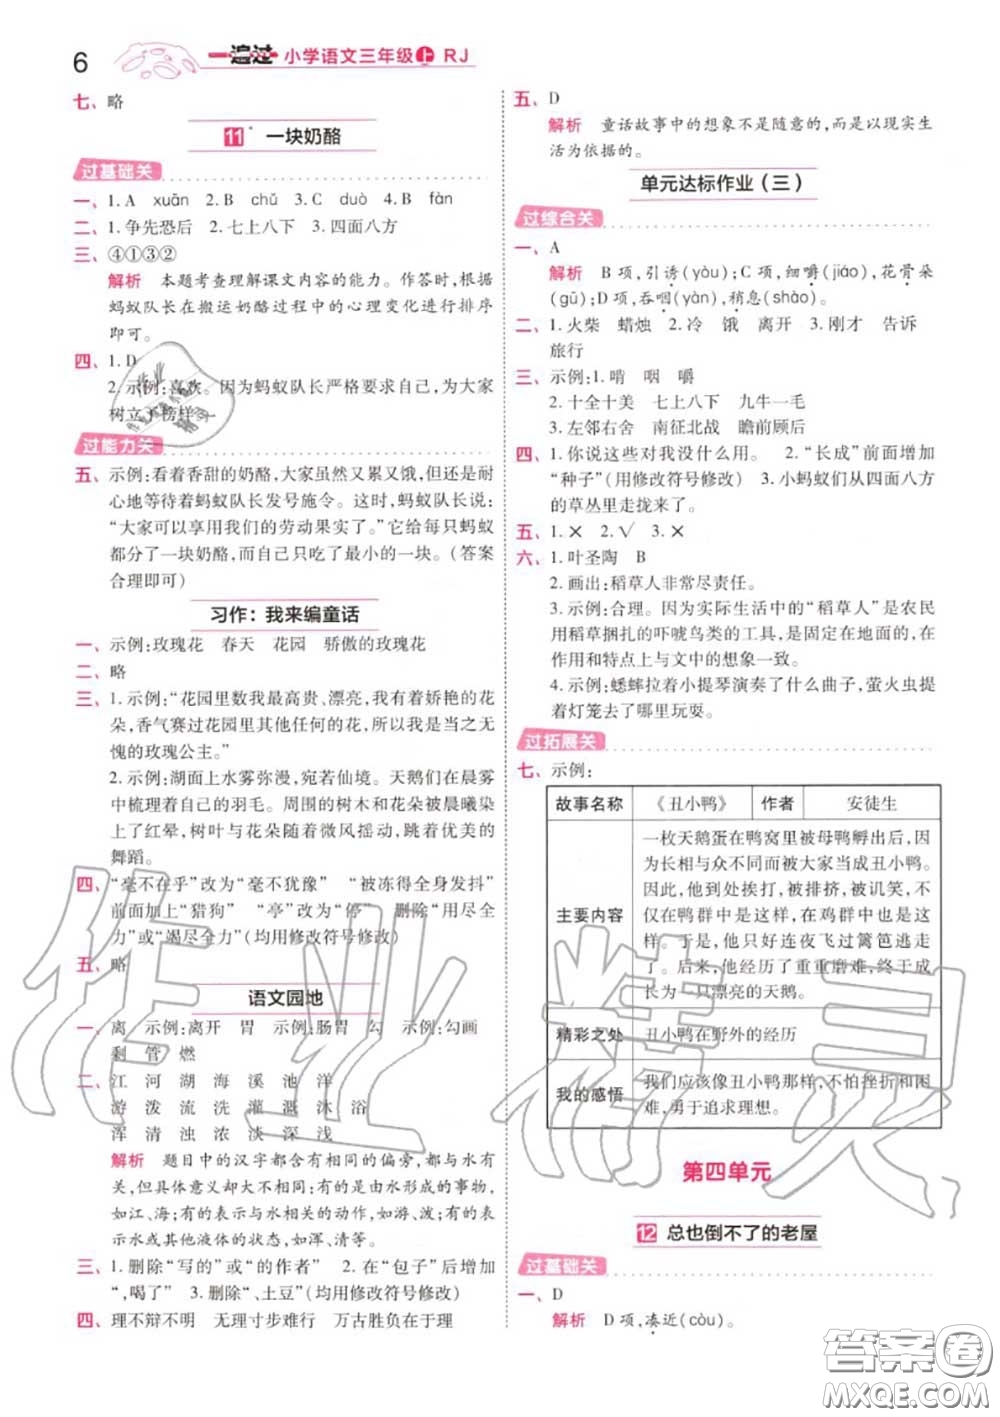 6
一遍过 小学语文三年级 上 RJ
七、略
11* 一块奶酪
过基础关
一、1. A xuān 2. B chǔ 3. C duò 4. B fàn
二、1. 争先恐后 2. 七上八下 3. 四面八方
三、④①③②
解析 本题考查理解课文内容的能力。作答时,根据
蚂蚁队长在搬运奶酪过程中的心理变化进行排序
即可。
四、1. D
2. 示例:喜欢。因为蚂蚁队长严格要求自己,为大家
树立了榜样。
过能力关
五、示例:看着香甜的奶酪,大家虽然又累又饿,但还是耐
心地等待着蚂蚁队长发号施令。这时,蚂蚁队长说:
“大家可以享用我们的劳动果实了。”它给每只蚂蚁
都分了一块奶酪,而自己只吃了最小的一块。(答案
合理即可)
习作：我来编童话
一、示例:玫瑰花 春天 花园 骄傲的玫瑰花
二、略
三、1. 示例:“花园里数我最高贵、漂亮,我有着娇艳的花
朵,香气赛过花园里其他任何的花,所以我是当之无
愧的玫瑰公主。”
2. 示例:湖面上水雾弥漫,宛若仙境。天鹅们在晨雾
中梳理着自己的羽毛。周围的树木和花被晨曦染
上了红晕,树叶与花朵随着微风摇动,跳着优美的
舞蹈。
四、“毫不在乎”改为“毫不犹豫” “被冻得全身发抖”
前面加上“猎狗” “亭”改为“停” 删除“用尽全
力”或“竭尽全力”(均用修改符号修改)
五、略
语文园地
一、离 示例:离开 胃 示例:肠胃 勾 示例:勾画
剩 管 燃
二、江 河 湖 海 溪 池 洋
游 泼 流 洗 灌 溉 沐 浴
浑 清 浊 浓 淡 深 浅
解析 题目中的汉字都含有相同的偏旁,都与水有
关,但具体意义却大不相同:有的是由水形成的事物,
如江、海;有的是与水相关的动作,如游、泼;有的是
水或其他液体的状态,如浑、清等。
三、1. 删除“写的”或“的作者” 2. 在“包子”后面增加
“,喝了” 3. 删除“、土豆”(均用修改符号修改)
四、理不辩不明 无理寸步难行 万古胜负在于理
五、D
解析 童话故事中的想象不是随意的,而是以现实生
活为依据的。
单元达标作业（三）
过综合关
一、A
解析 B 项,引诱(yòu);C 项,细嚼(jiáo),花骨朵
(gū);D 项,吞咽(yàn),稍息(shào)。
二、1. 火柴 蜡烛 2. 冷 饿 离开 3. 刚才 告诉
旅行
三、示例:1. 啃 咽 嚼
2. 十全十美 七上八下 九牛一毛
3. 左邻右舍 南征北战 瞻前顾后
四、1. 你说这些对我没什么用。 2. “长成”前面增加
“种子”(用修改符号修改) 3. 小蚂蚁们从四面八方
的草丛里走拢来了。
五、1. × 2. √ 3. ×
六、1. 叶圣陶 B
2. 画出:稻草人非常尽责任。
3. 示例:合理。因为实际生活中的“稻草人”是农民
用稻草捆扎的吓唬鸟类的工具,是固定在地面的,在
作用和特点上与文中的想象一致。
4. 示例:蟋蟀拉着小提琴演奏了什么曲子,萤火虫提
着灯笼去了哪里玩耍。
过拓展关
七、示例:
故事名称 《丑小鸭》 作者 安徒生
主要内容 一枚天鹅蛋在鸭窝里被母鸭孵出后,因
为长相与众不同而被大家当成丑小鸭。
因此,他到处挨打,被排挤,被讥笑,不
仅在鸭群中是这样,在鸡群中也是这
样。于是,他只好连夜飞过篱笆逃走
了。后来,他经历了重重磨难,终于成
长为一只漂亮的天鹅。
精彩之处 丑小鸭在野外的经历
我的感悟 我们应该像丑小鸭那样,不怕挫折和困
难,勇于追求理想。
第四单元
12 总也倒不了的老屋
过基础关
一、D
解析 D 项,凑近(còu)。
作业精灵
答案圈
MXQE.COM